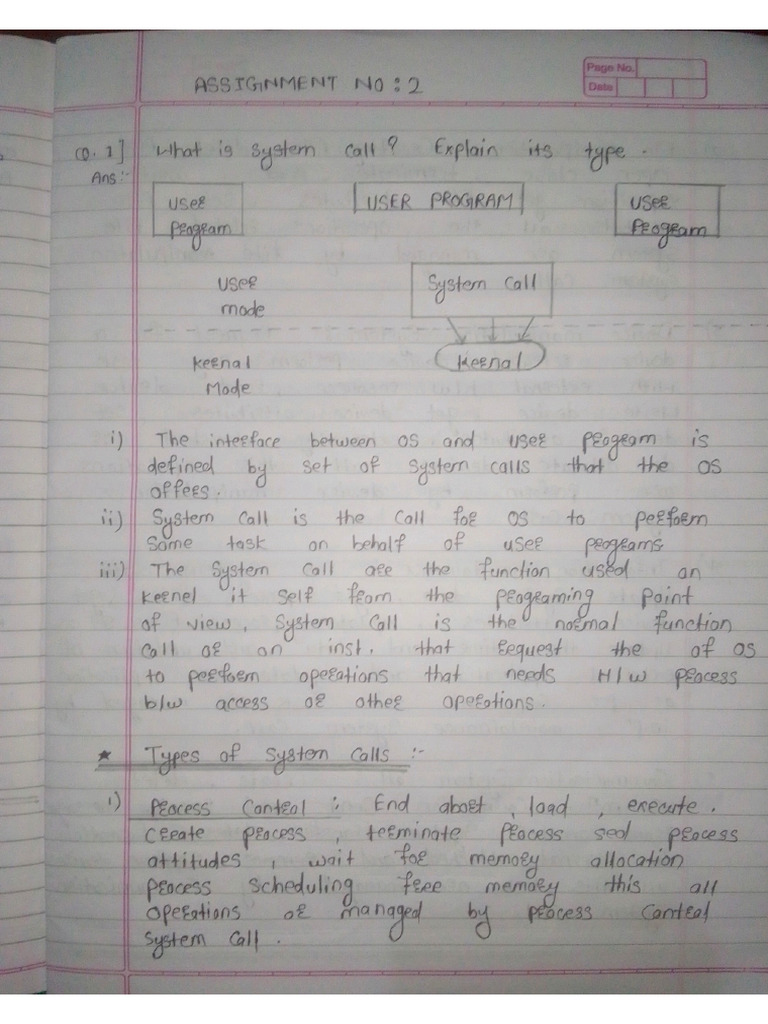 ASSIGNMENT NO: 2
Page No.
Date
Q. 1] What is system call? Explain its type.
Ans:-
User Program
USER PROGRAM
User Program
User mode
System Call
Kernal Mode
Kernal
i) The interface between OS and user program is
defined by set of system calls that the OS
offers.
ii) System Call is the Call for OS to perform
Some task on behalf of user programs
iii) The System Call are the function used on
kernel it self from the programing point
of view, System Call is the normal function
Call or an inst. that request the of OS
to perform operations that needs H/w process
b/w access or other operations.
* Types of System Calls :-
i) Process Control : End abort, load, execute.
Create process, terminate process sed process
attitudes, wait for memory allocation
process scheduling free memory this all
operations or managed by process Control
System Call.